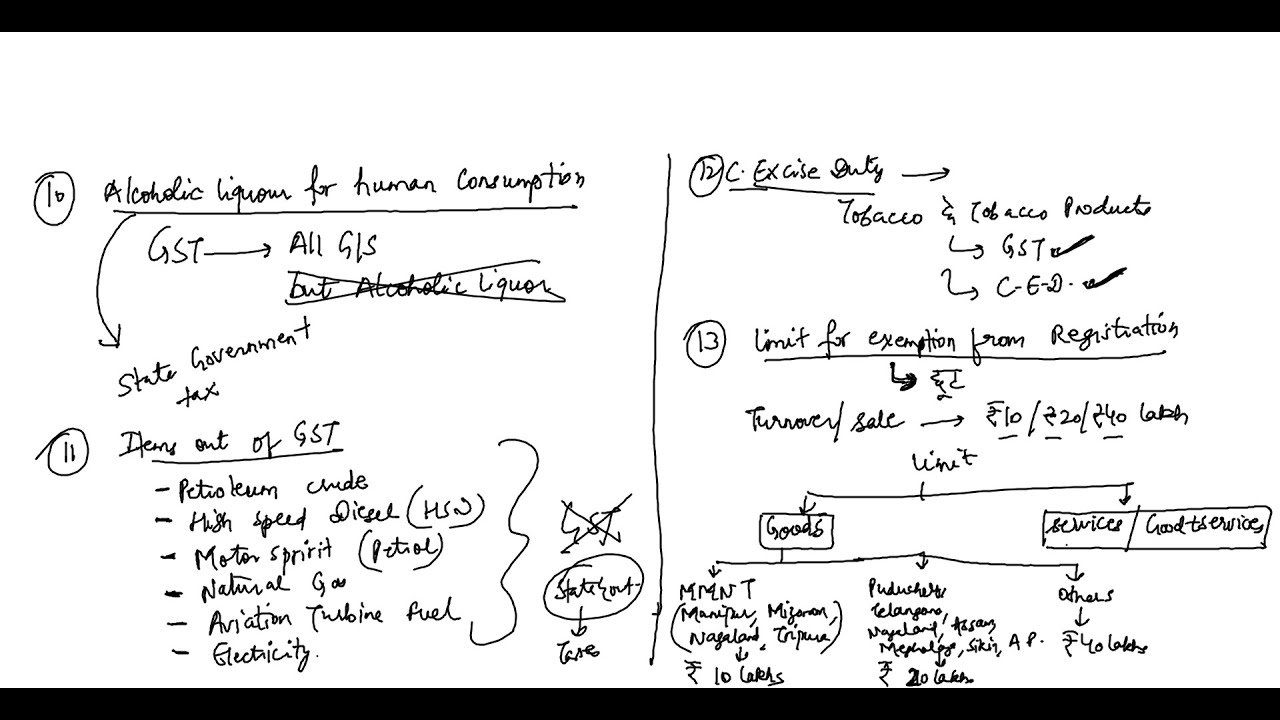 10 Alcoholic liquour for human Consumption
GST → All G/S
but Alcoholic liquor
State Government
tax
11 Items out of GST
- Petroleum crude
- High speed Diesel (HSD)
- Motor spririt (Petrol)
- Natural Gas
- Aviation Turbine fuel
- Electricity.
GST
State Govt
Taxes
12 C. Excise Duty →
Tobacco & Tobacco Products
GST ✓
C.E.D. ✓
13 limit for exemption from Registration
Turnover/sale → ₹10/₹20/₹40 lakhs
limit
Goods
Services/Good+services
MMNT
(Manipur, Mizoram,
Nagaland, Tripura)
₹ 10 lakhs
Puducherry
Telangana,
Nagaland, Assam
Meghalaya, Sikin, A.P.
₹ 20 lakhs
Others
₹40 lakhs